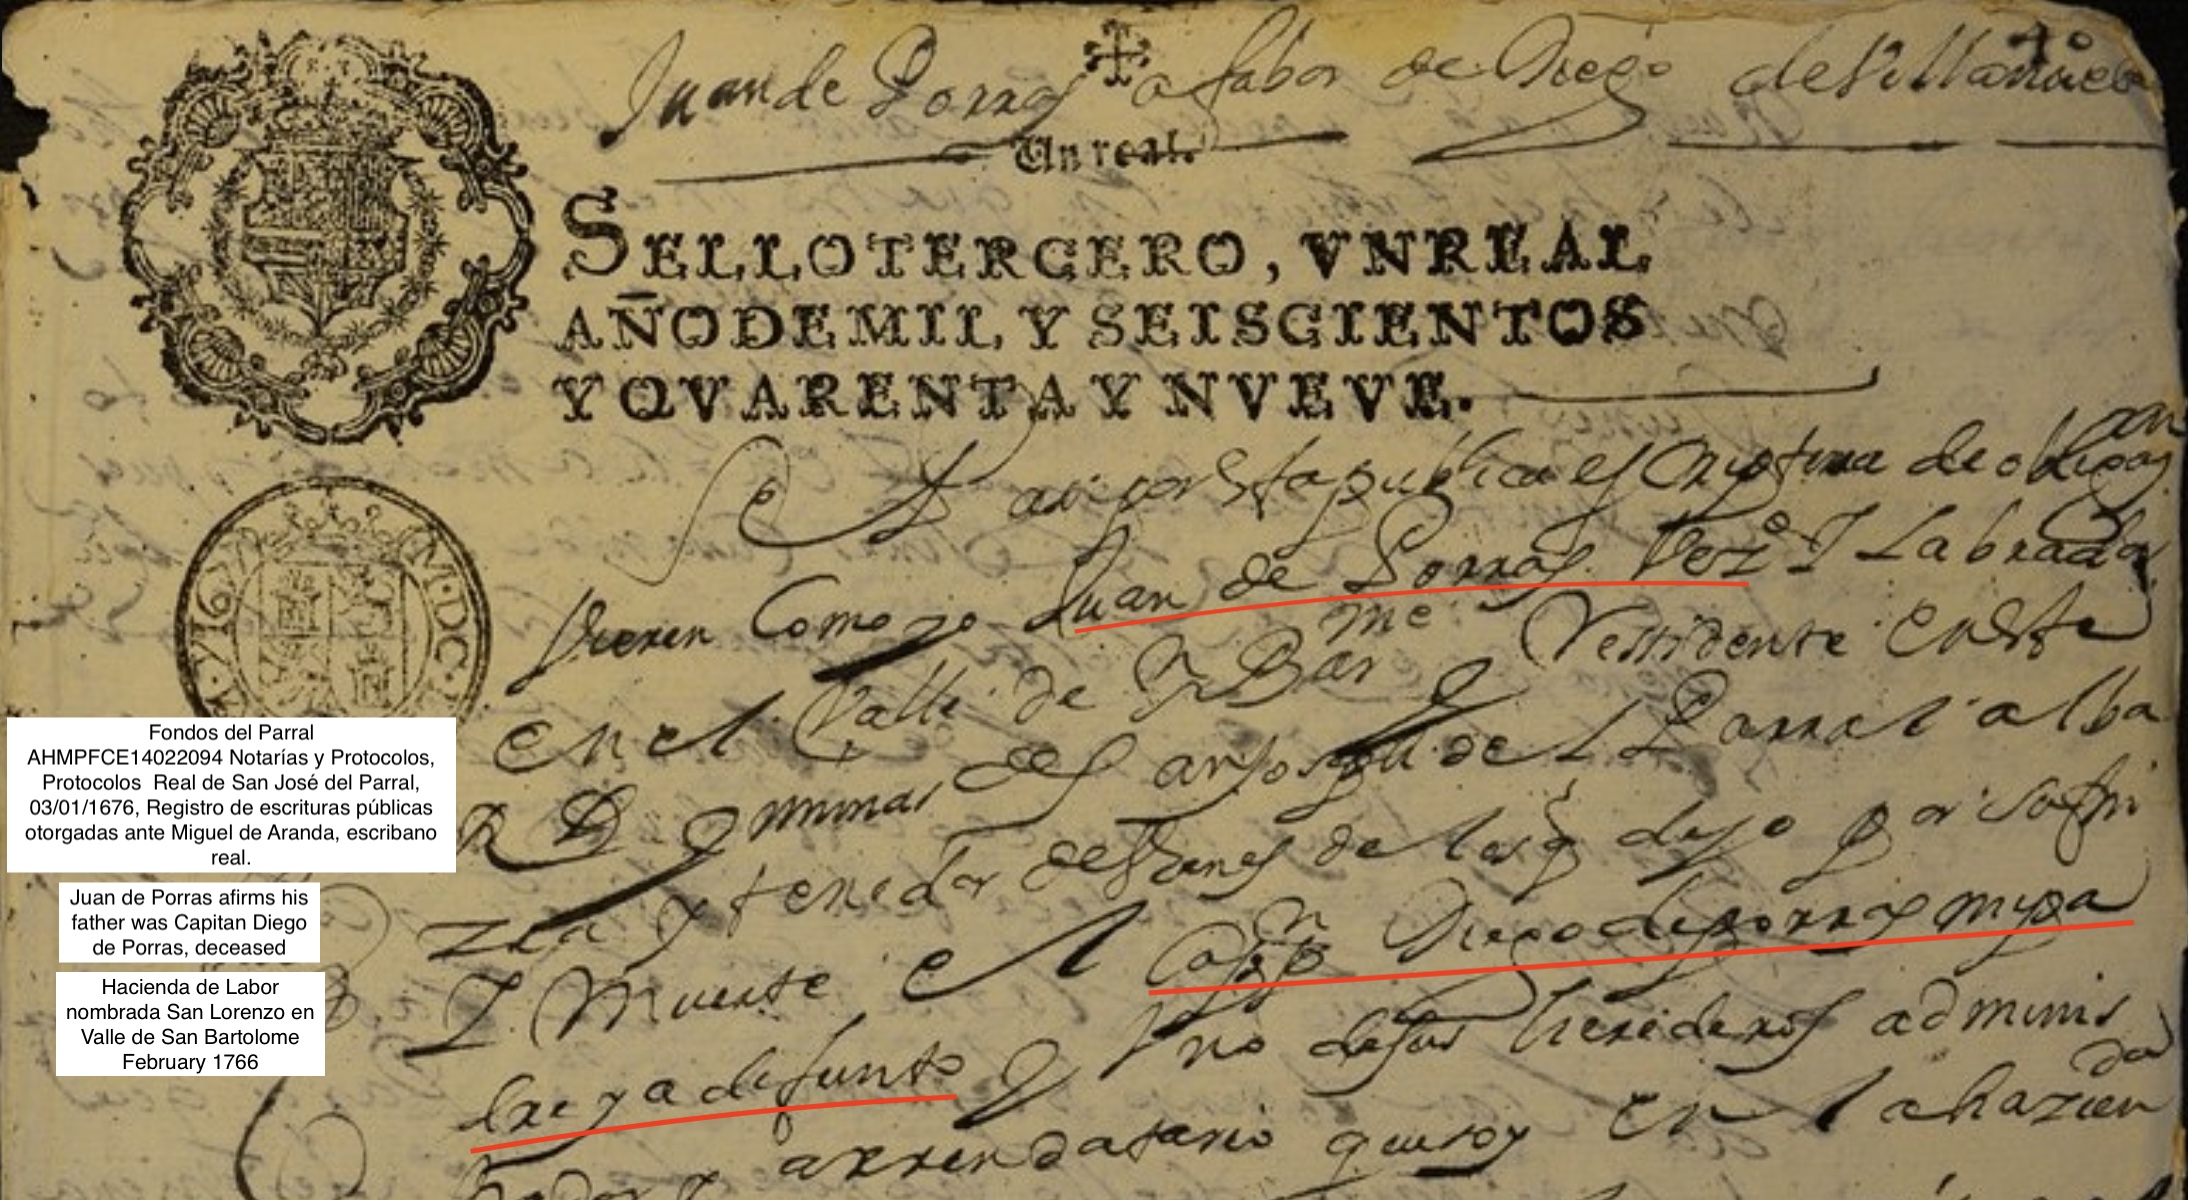 Juan de Porras a fabor de Diego de Villanueba
Un real.
SELLO TERCERO, VN REAL,
AÑO DE MIL Y SEISCIENTOS
Y QVARENTA Y NVEVE.
Sepan por esta publica escriptura de obligaon
Vieren Como yo Juan de Porras Vezo I Labrador
en el Valle de Sn Barme Ressidente en este
Rl de minas de S Josph del Parral alba
zea y tenedor de Bienes de los q dejo por su fin
I Muerte el Cappn Diego de porras mi pa
dre ya difunto y Vno de sus herederos adminis
trador y arrendatario que soy en la hazienda
Fondos del Parral
AHMPFCE14022094 Notarías y Protocolos,
Protocolos Real de San José del Parral,
03/01/1676, Registro de escrituras públicas
otorgadas ante Miguel de Aranda, escribano
real.
Juan de Porras afirms his
father was Capitan Diego
de Porras, deceased
Hacienda de Labor
nombrada San Lorenzo en
Valle de San Bartolome
February 1766